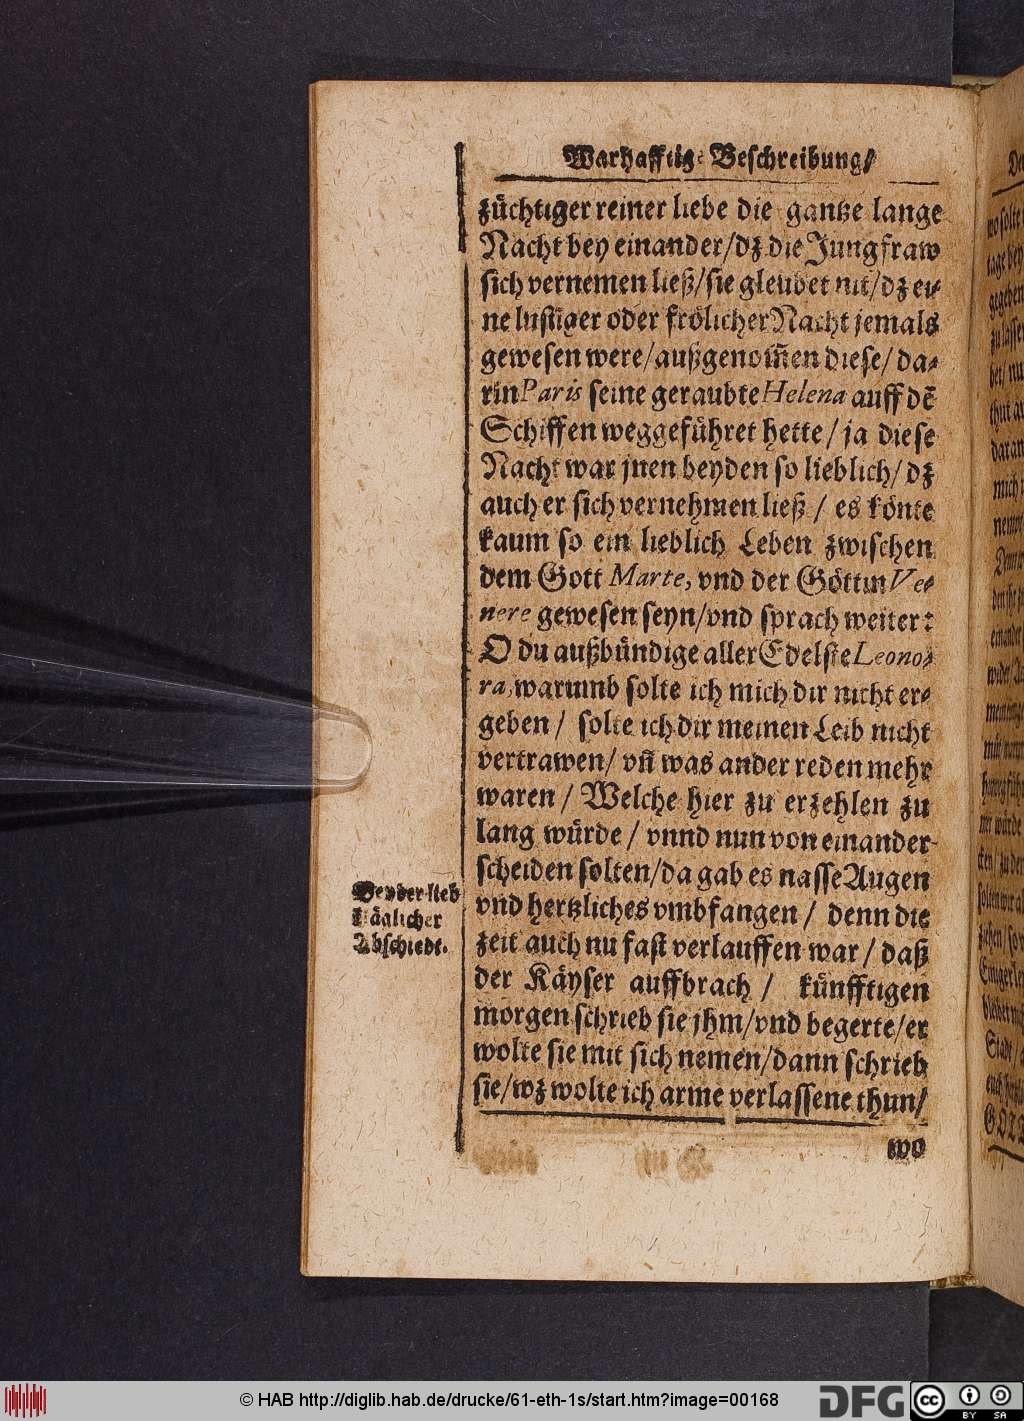 Warhafftige Beschreibung/
züchtiger reiner liebe die gantze lange
Nacht bey einander/dz die Jungfraw
sich vernemen ließ/sie gleubet nit/dz ei-
ne lustiger oder frölicher Nacht jemals
gewesen were/außgenom̃en diese/da-
rin Paris seine geraubte Helena auff dẽ
Schiffen weggeführet hette/ja diese
Nacht war jnen beyden so lieblich/dz
auch er sich vernehmen ließ / es könte
kaum so ein lieblich Leben zwischen
dem Gott Marte, vnd der Göttin Ve-
nere gewesen seyn/vnd sprach weiter:
O du außbündige aller Edelste Leono-
ra, warumb solte ich mich dir nicht er-
geben / solte ich dir meinen Leib nicht
vertrawen/ vñ was ander reden mehr
waren / Welche hier zu erzehlen zu
lang würde / vnnd nun von einander
scheiden solten/da gab es nasse Augen
Beyder lieb
kläglicher
Abschiedt.
vnd hertzliches vmbfangen / denn die
zeit auch nu fast verlauffen war / daß
der Käyser auffbrach / künfftigen
morgen schrieb sie jhm/vnd begerte/er
wolte sie mit sich nemen/dann schrieb
sie/wz wolte ich arme verlassene thun/
wo
© HAB http://diglib.hab.de/drucke/61-eth-1s/start.htm?image=00168
DFG
cc BY SA